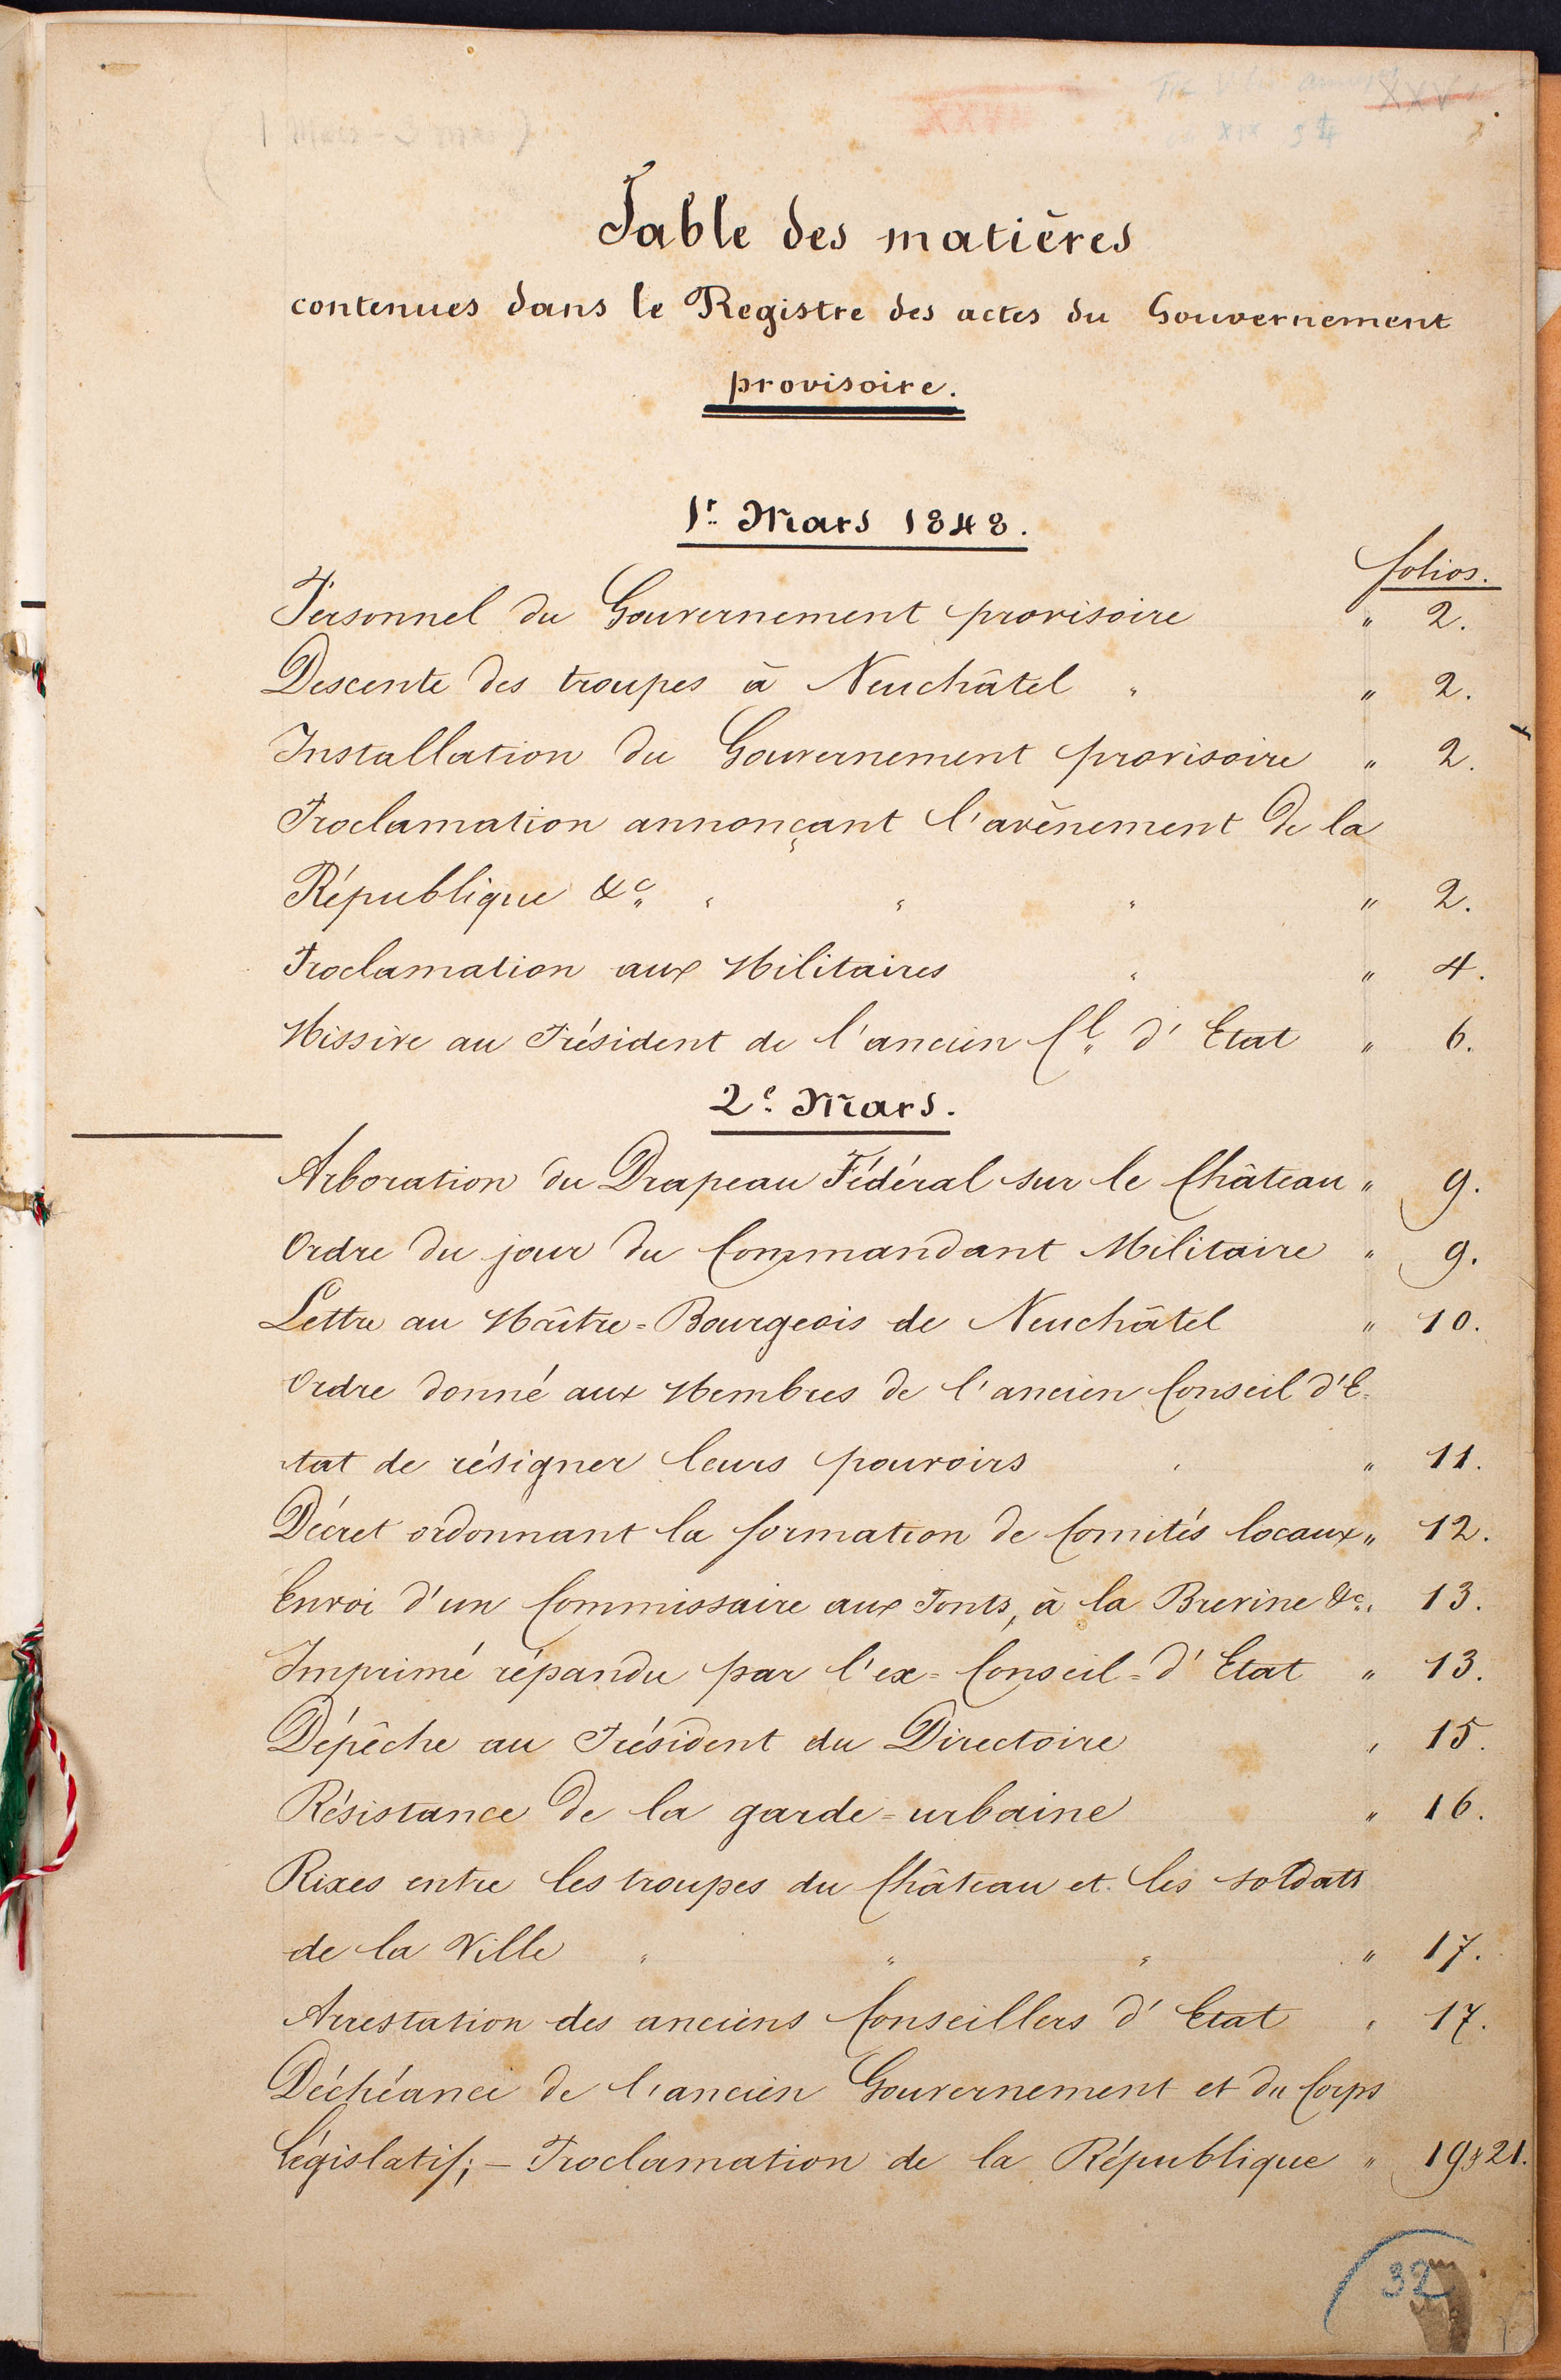 XXV
Table des matières
contenues dans le Registre des actes du Gouvernement
provisoire.
1r. Mars 1848.
folios.
Personnel du Gouvernement provisoire " 2.
Descente des troupes à Neuchâtel " " 2.
Installation du Gouvernement provisoire " 2.
Proclamation annonçant l'avènement de la
République &c " " " " 2.
Proclamation aux Militaires " " 4.
Missive au Président de l'ancien Cl d'Etat " 6.
2e. Mars.
Arboration du Drapeau Fédéral sur le Château " 9.
Ordre du jour du Commandant Militaire " 9.
Lettre au Maître=Bourgeois de Neuchâtel " 10.
Ordre donné aux Membres de l'ancien Conseil d'E=
tat de résigner leurs pouvoirs " " 11.
Décret ordonnant la formation de Comités locaux " 12.
Envoi d'un Commissaire aux Ponts, à la Brevine &c " 13.
Imprimé répandu par l'ex=Conseil=d'Etat " 13.
Dépêche au Président du Directoire " 15.
Résistance de la garde=urbaine " 16.
Rixes entre les troupes du Château et les soldats
de la Ville " " " " 17.
Arrestation des anciens Conseillers d'Etat " 17.
Déchéance de l'ancien Gouvernement et du Corps
Législatif; – Proclamation de la République " 19 & 21.
32